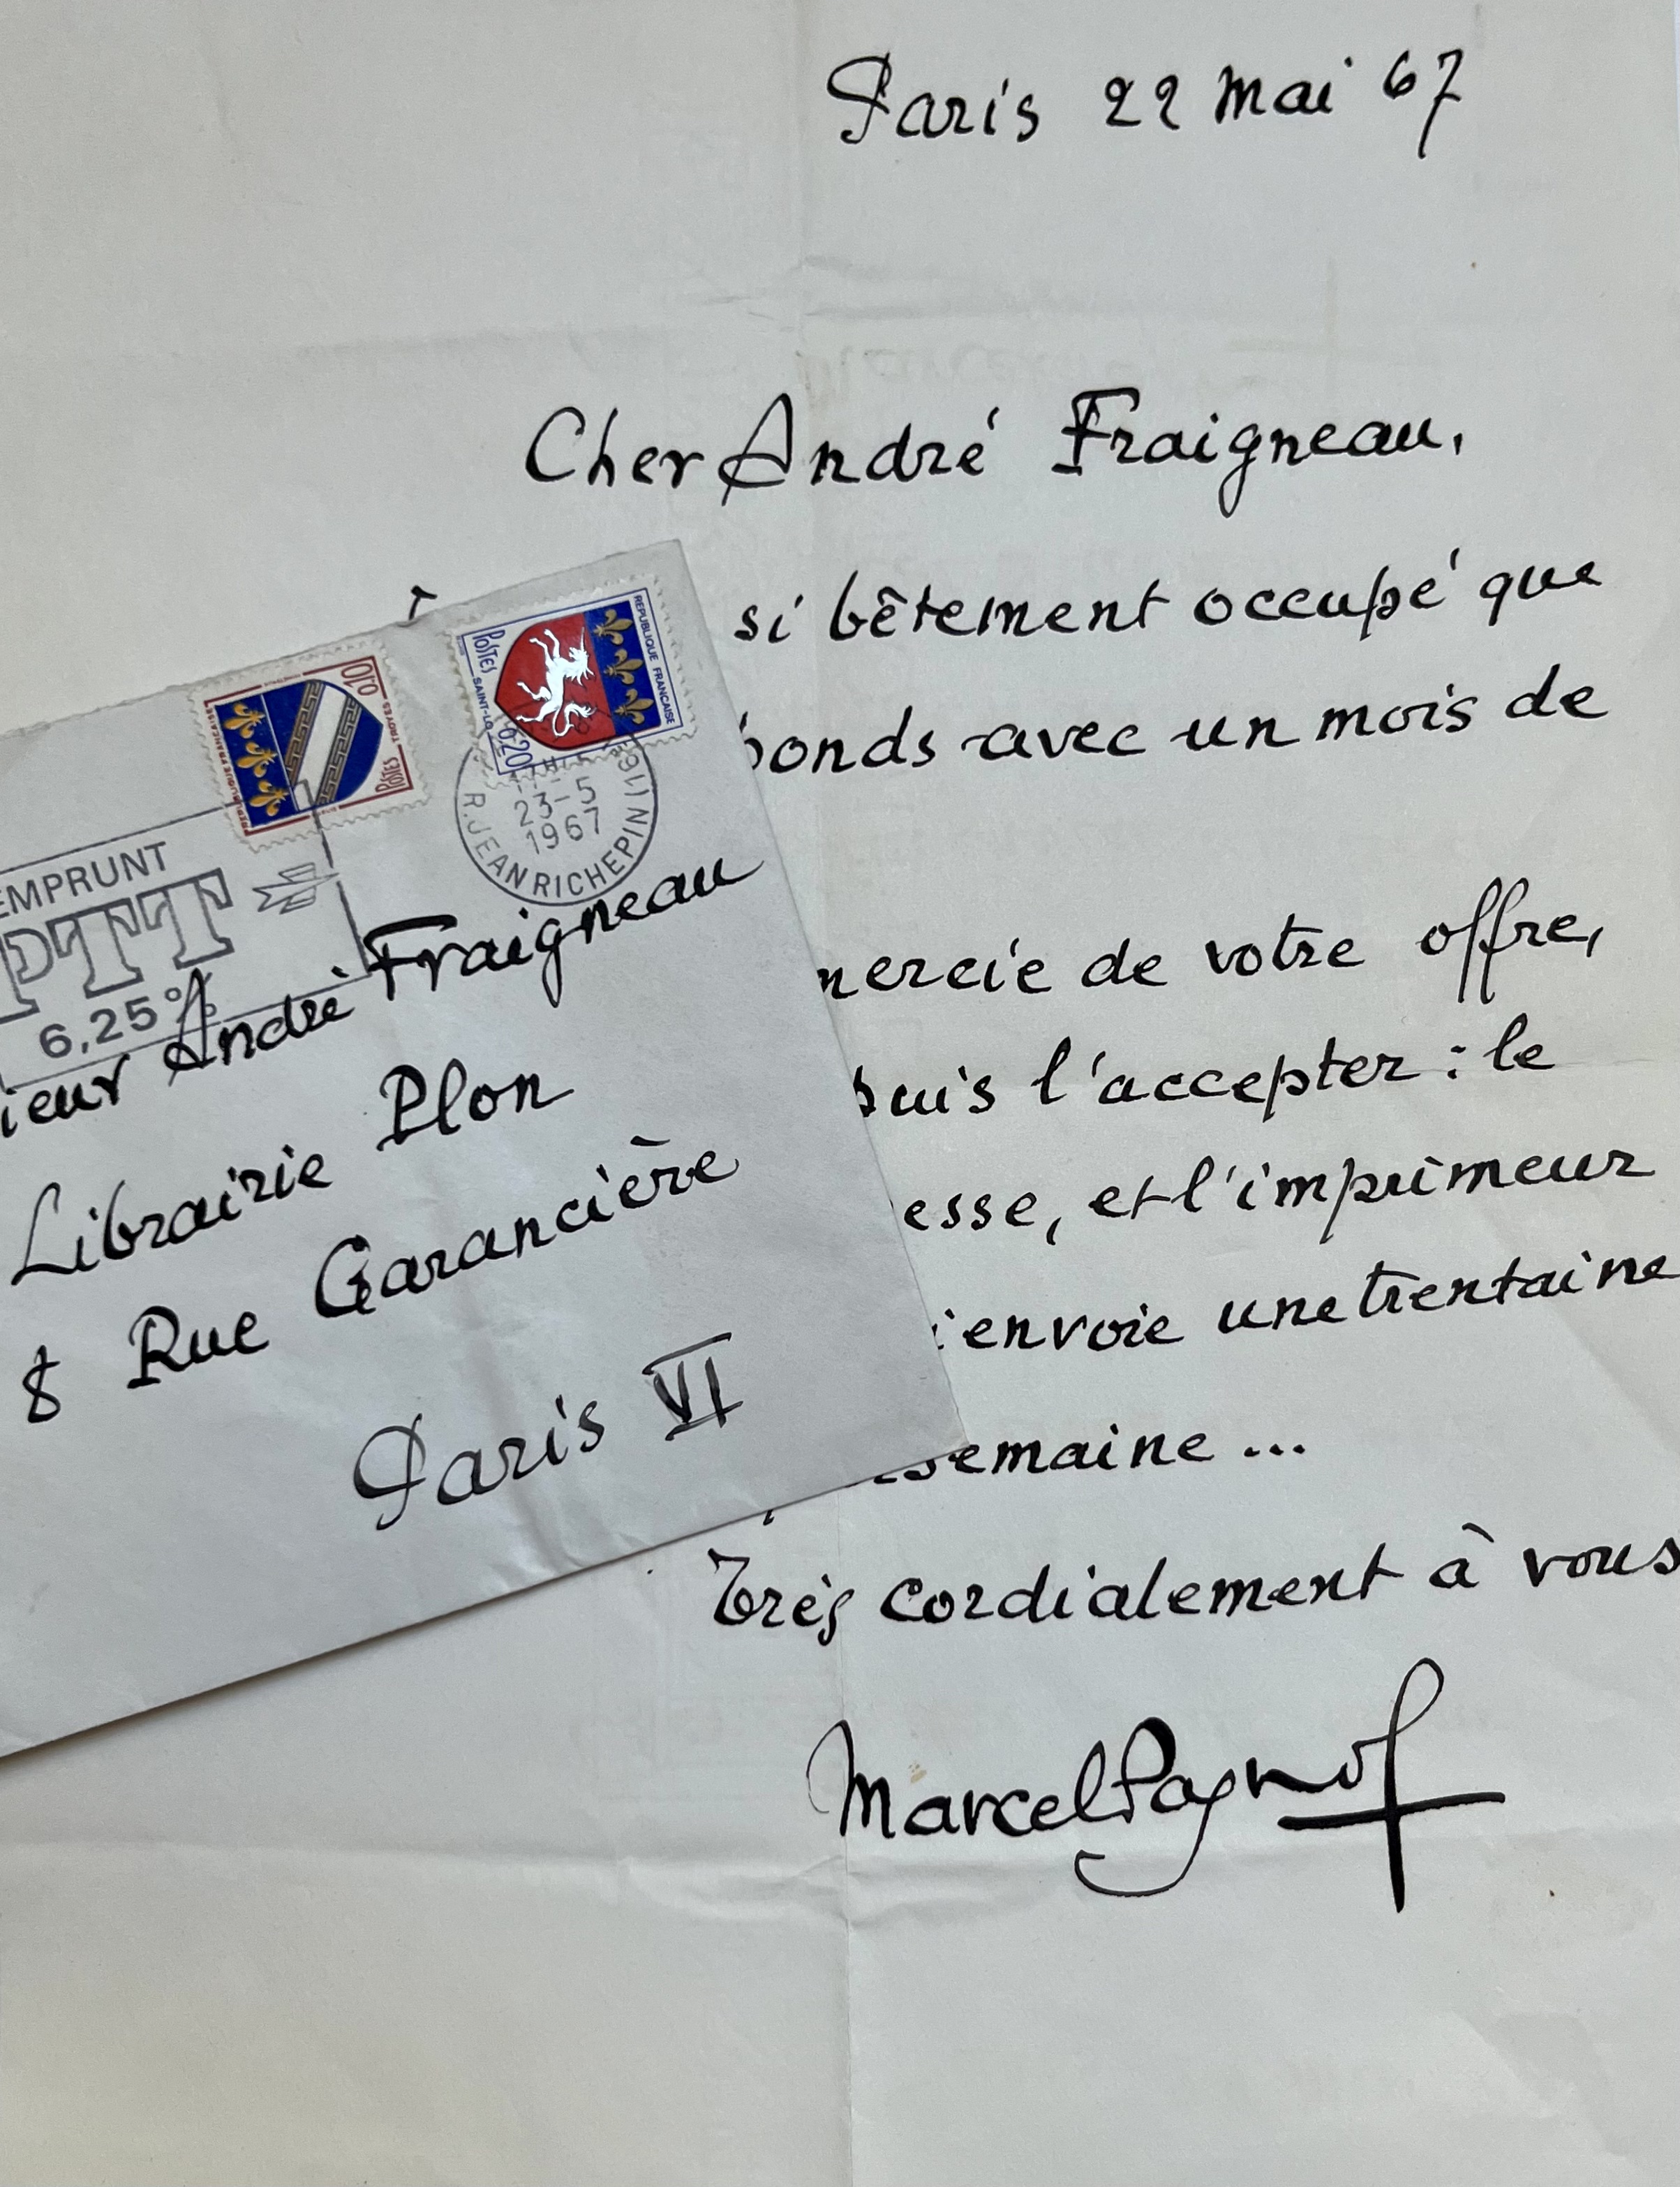 Paris 22 mai 67
Cher André Fraigneau,
si bêtement occupé que
ponds avec un mois de
mercie de votre offre,
puis l'accepter : le
esse, et l'imprimeur
envoie une trentaine
semaine ...
Très cordialement à vous
Marcel Pagnol
REPUBLIQUE FRANÇAISE
POSTES SAINT-LO 0,20
0,10
POSTES TROYES
REPUBLIQUE FRANÇAISE
23-5
1967
R. JEAN RICHEPIN (16e)
EMPRUNT
PTT
6,25%
ieur André Fraigneau
Librairie Plon
8 Rue Garancière
Paris VI